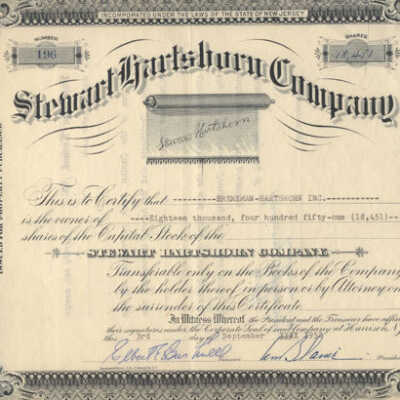 INCORPORATED UNDER THE LAWS OF THE STATE OF NEW JERSEY
NUMBER
196
SHARES
18,451
Stewart Hartshorn Company
Stewart Hartshorn
This is to Certify that BRENEMAN-HARTSHORN INC.
is the owner of ----Eighteen thousand, four hundred fifty-one (18,451)--
shares of the Capital Stock of the
STEWART HARTSHORN COMPANY
Transferable only on the Books of the Company
by the holder thereof in person or by Attorney on
the surrender of this Certificate.
In Witness Whereof, the President and the Treasurer have affixed
their signatures under the Corporate Seal of said Company at Harrison, N.J.
this 3rd day of September